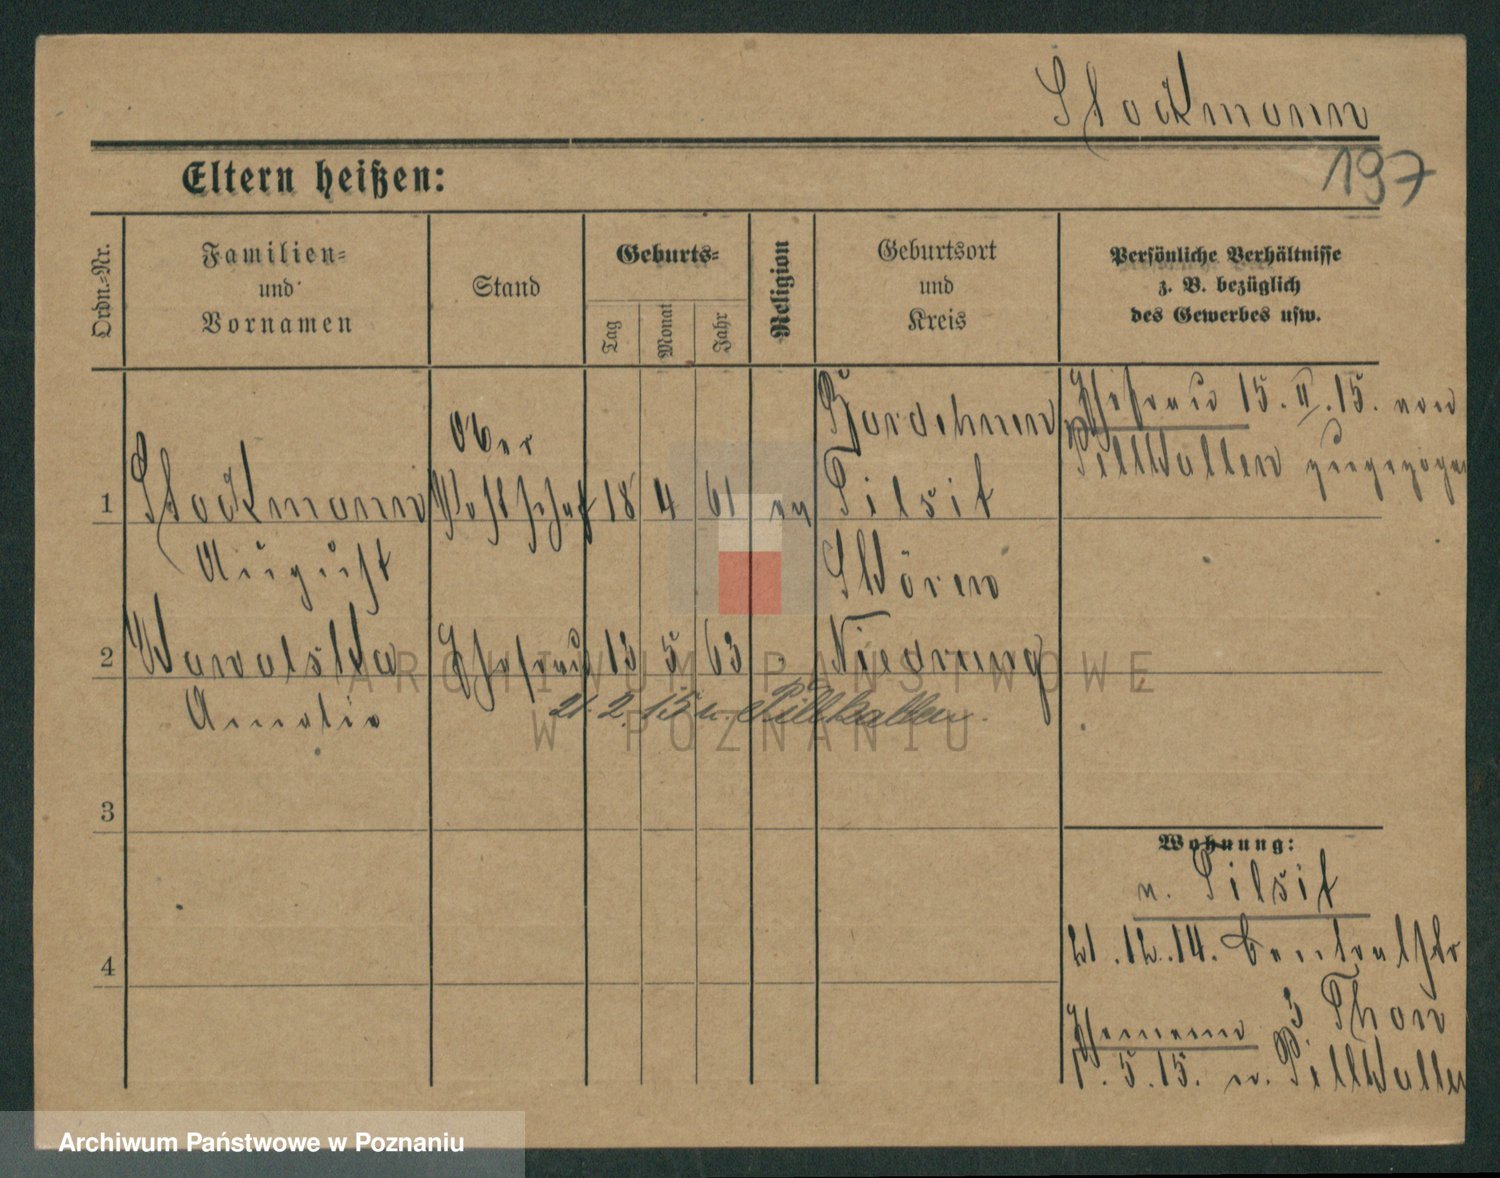 Stockmann
197
Eltern heißen:
Ordn.-Nr.
Familien-
und
Vornamen
Stand
Geburts-
Tag
Monat
Jahr
Religion
Geburtsort
und
Kreis
Persönliche Verhältnisse
z. B. bezüglich
des Gewerbes usw.
1
Stockmann
August
Ober
18
4
61
ev
Tilsit
Ehefrau 15. II. 15. von
Pillkallen zugezogen
2
Wowalska
Amalie
Ehefrau
13
5
63
21. 2. 15 n. Pillkallen.
3
4
Wohnung:
n. Tilsit
21.12.14. Centralhtr
3 Thon
Ehemann
1.5.15. n. Pillkallen
ARCHIWUM PAŃSTWOWE
W POZNANIU
Archiwum Państwowe w Poznaniu